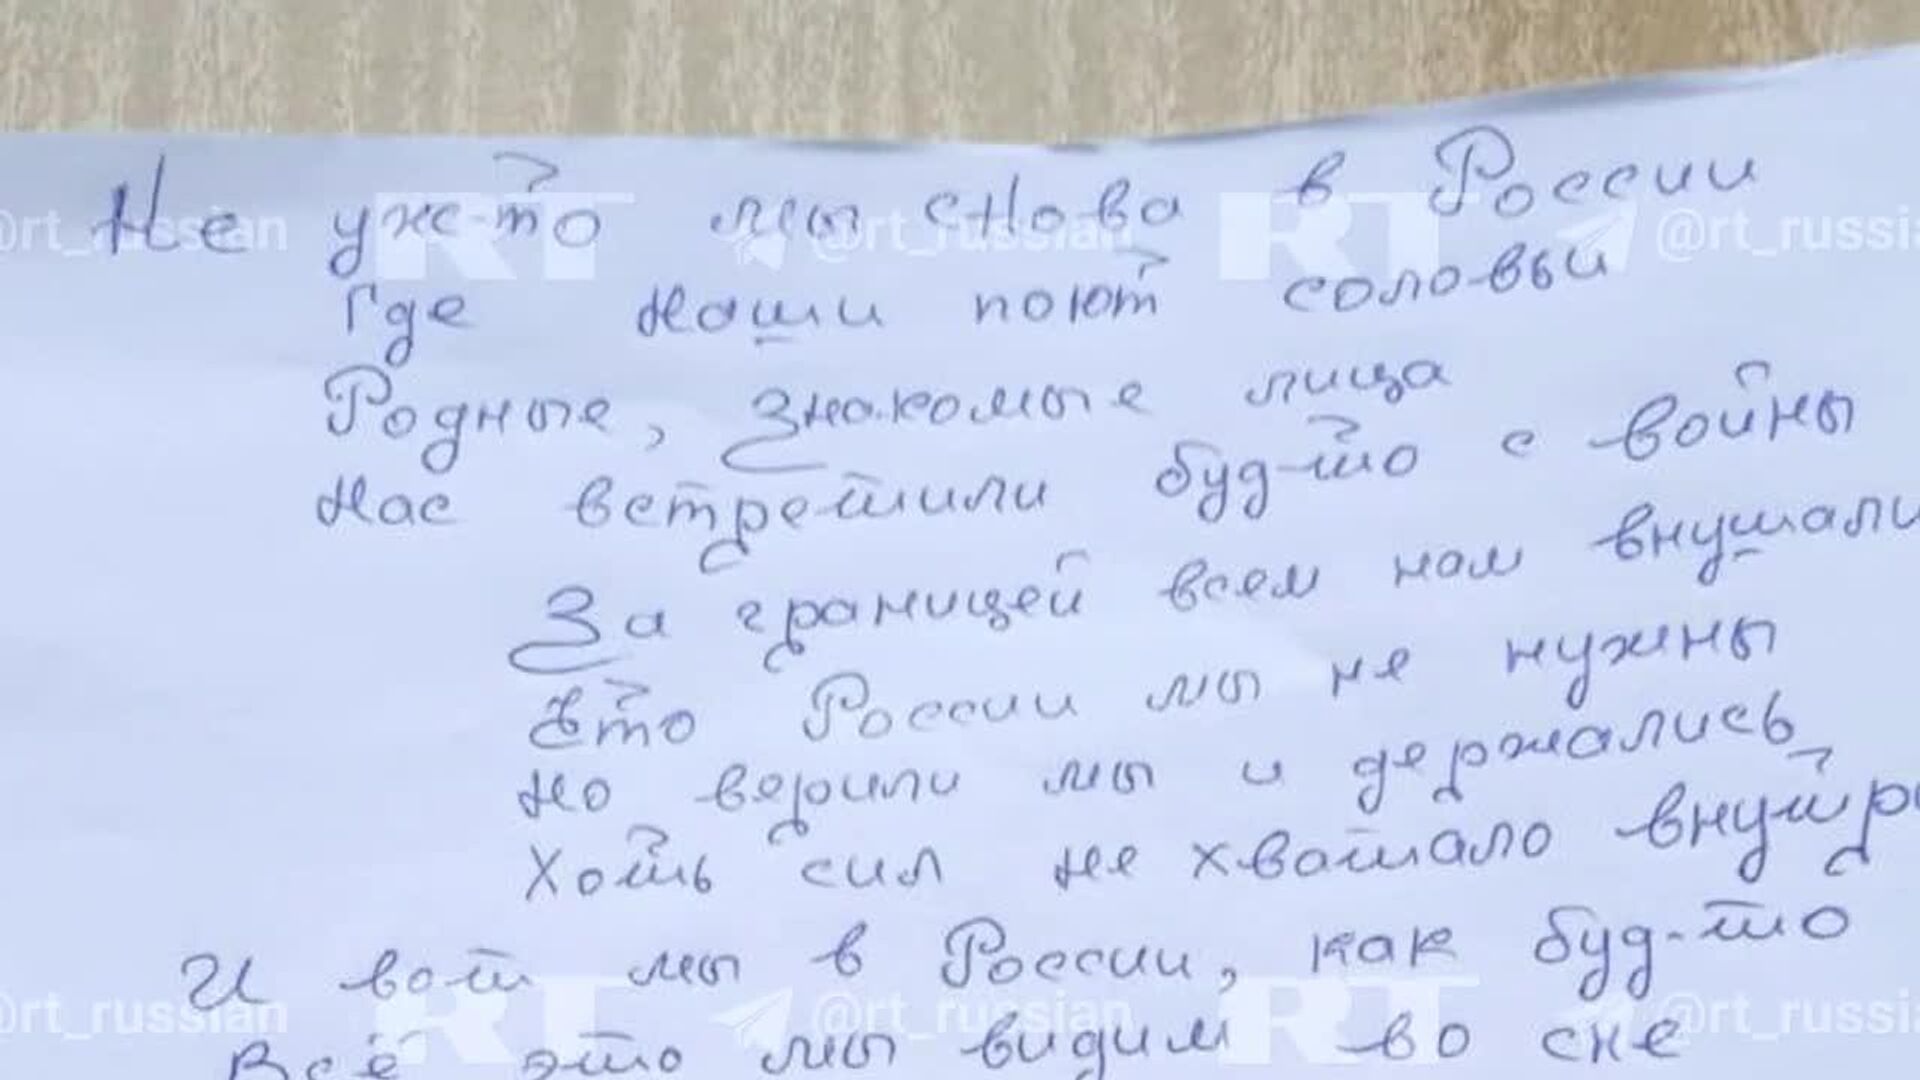 Не уже-то мы снова в России
Где наши поют соловьи
Родные, знакомые лица
Нас встретили буд-то с войны
За границей всем нам внушали
Что России мы не нужны
Но верили мы и держались
Хоть сил не хватало внутри
И вот мы в России, как буд-то
Всё это мы видим во сне
@rt_russian RT @rt_russian RT @rt_russian
@rt_russian RT @rt_russian RT @rt_russian